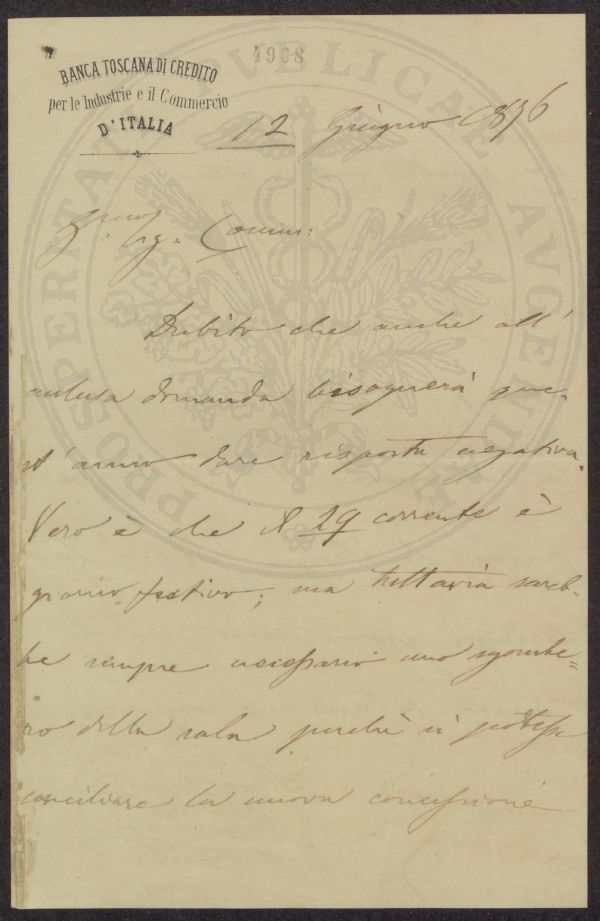 4968
BANCA TOSCANA DI CREDITO
per le Industrie e il Commercio
D'ITALIA
12 Giugno 1876
Sig. Comm:
Dubito che anche all'
acclusa domanda bisognerà que-
st'anno dare risposta negativa.
Vero è che il 29 corrente è
giorno festivo; ma tuttavia sareb-
be sempre necessario uno sgombe=
ro della sala perchè si potesse
conciliare la nuova concessione
PROSPERITATI PVBLICAE AVGENDAE